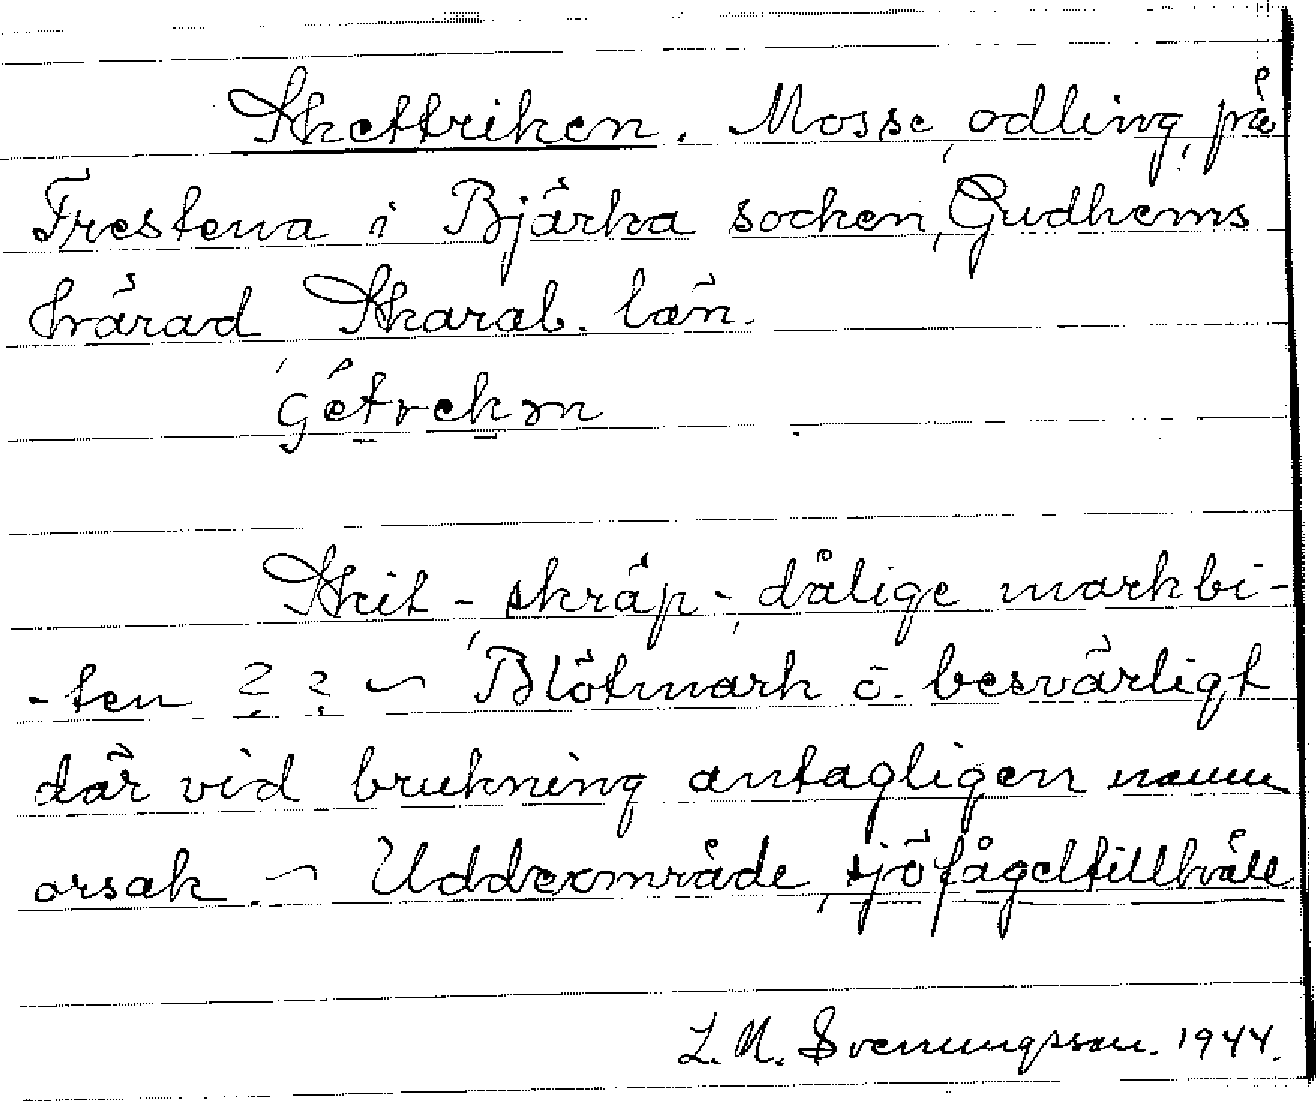 Skettriken. Mosse, odling, på
Frestena i Bjärka socken, Gudhems
härad Skarab. län.
Skit-, skräp-, dålige markbi-
-ten ? ? – Blötmark ö. besvärligt
där vid brukning antagligen namn
orsak. – Udderområde, sjöfågeltillhåll
L. M. Svenungsson. 1944.